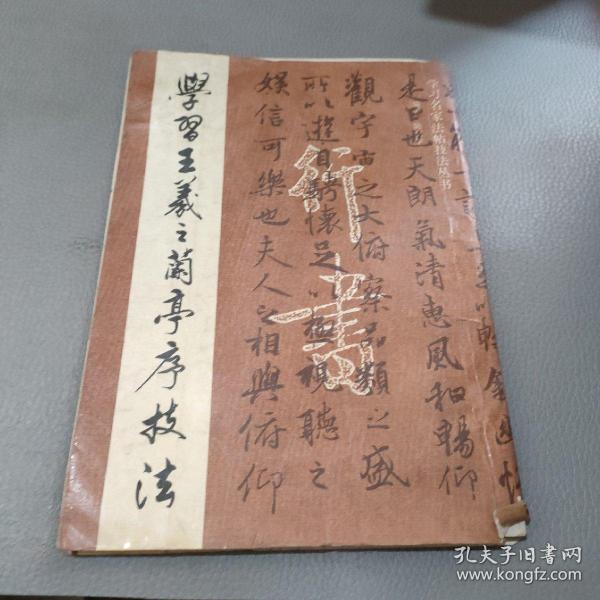 學習王羲之蘭亭序技法
行書
学习名家法帖技法丛书
是日也天朗氣清惠風和暢仰
觀宇宙之大俯察品類之盛
所以遊目騁懷足以極視聽之
娱信可樂也夫人之相與俯仰
孔夫子旧书网
www.kongfz.com